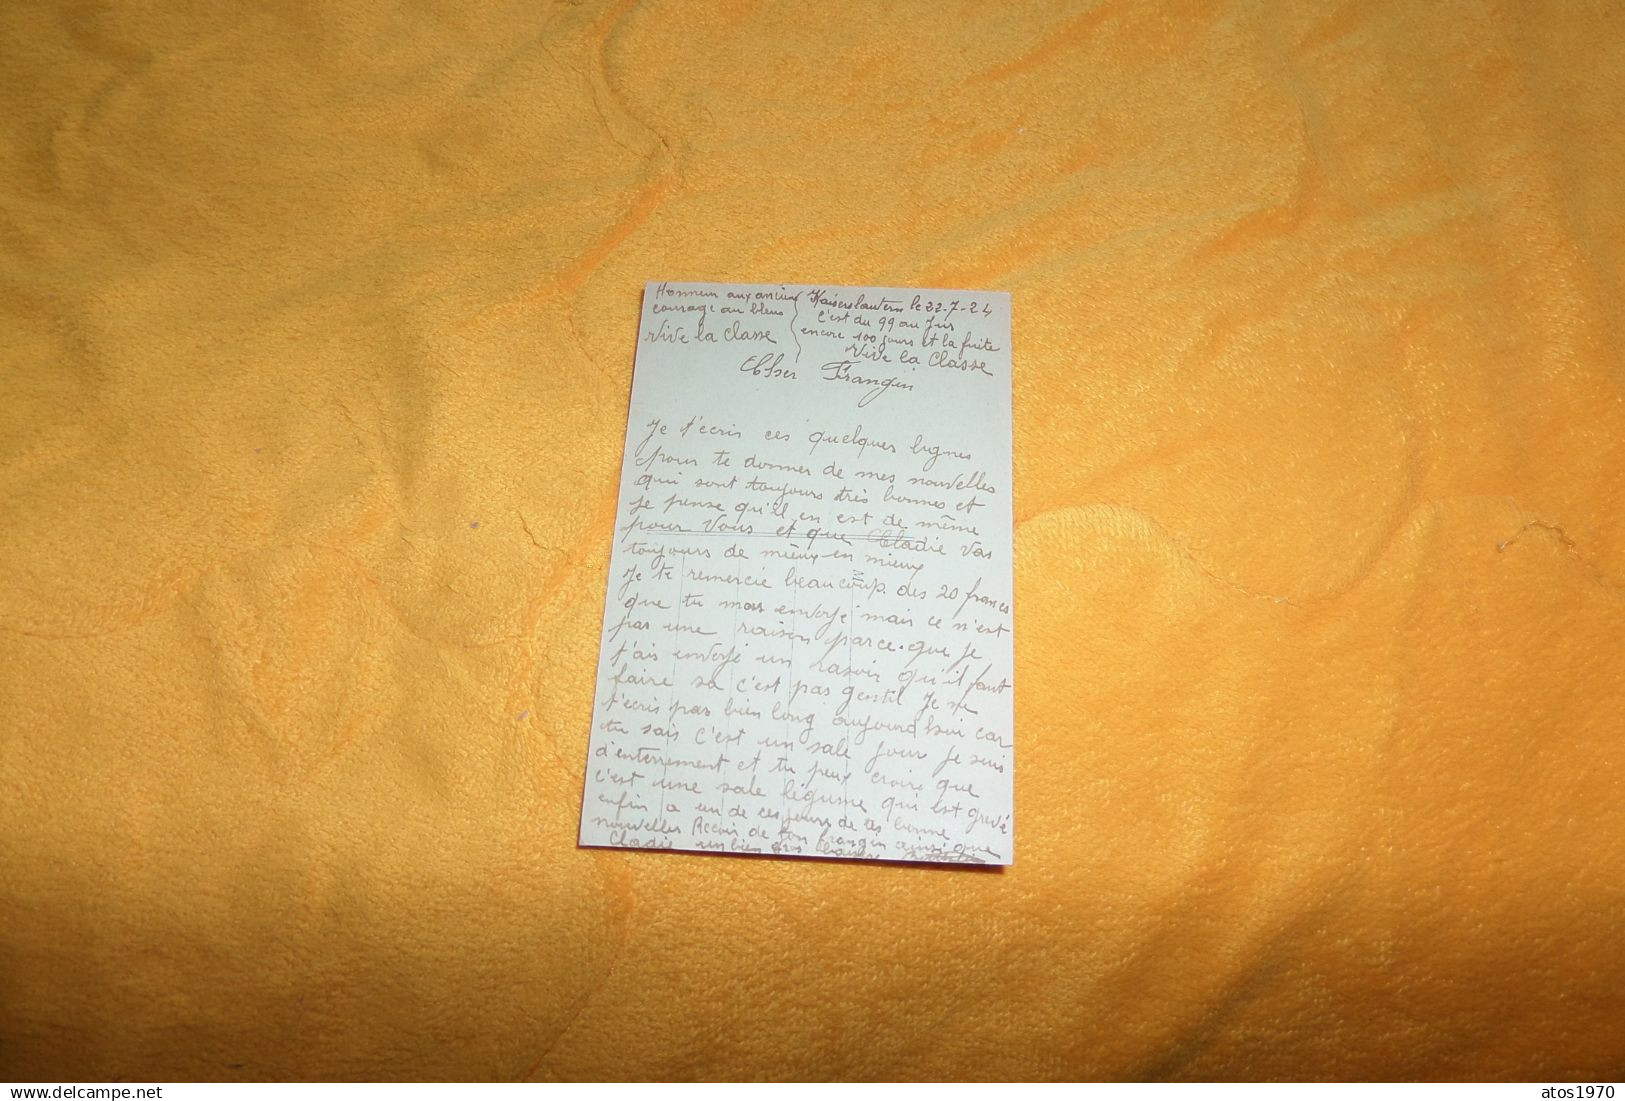 Honneur aux anciens
courage au bleus
Vive la Classe
Kaiserslautern le 22-7-24
C'est du 99 au Jus
encore 100 jours et la fuite
Vive la Classe
Cher Frangin
Je t'écris ces quelques lignes
pour te donner de mes nouvelles
qui sont toujours très bonnes et
je pense qu'il en est de même
pour Vous et que Cladie vas
toujours de mieux en mieux
Je te remercie beaucoup des 20 francs
que tu mas envoyé mais ce n'est
pas une raison parce que je
t'ais envoyé un rasoir qu'il faut
faire sa c'est pas gentil Je ne
t'écris pas bien long aujourd'hui car
tu sais c'est un sale jour je suis
d'enterrement et tu peux croire que
c'est une sale légume qui est grevé
enfin a un de ces jours de tes bonne
nouvelles Recois de ton frangin ainsi que
Cladie un bien gros baiser
atos1970